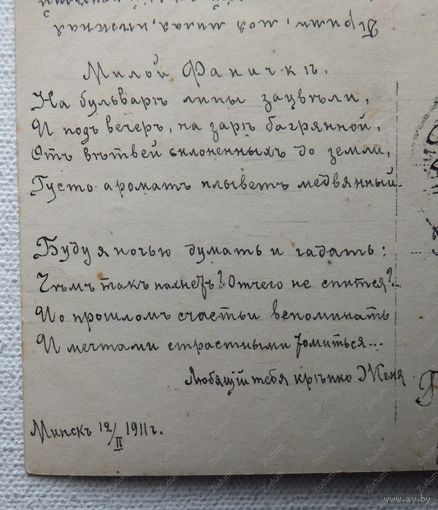 Милой Фаничкѣ.
На бульварѣ липы зацвѣли,
И подъ вечеръ, на зарѣ багрянной,
Отъ вѣтвей склоненныхъ до земли,
Густо ароматъ плыветъ медвянный.
Буду я ночью думать и гадать:
Чѣмъ такъ ? Отчего не спится?..
И о прошломъ счастьи вспоминать
И мечтами страстными томиться...
Любящій тебя крѣпко Женя
Минскъ 12/II 1911 г.